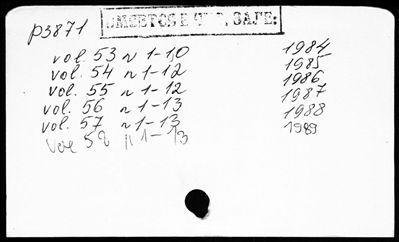 p3871
vol. 53 n 1-10 1984
vol. 54 n 1-12 1985
vol. 55 n 1-12 1986
vol. 56 n 1-13 1987
vol. 57 n 1-13 1988
vol 58 n 1-13 1989